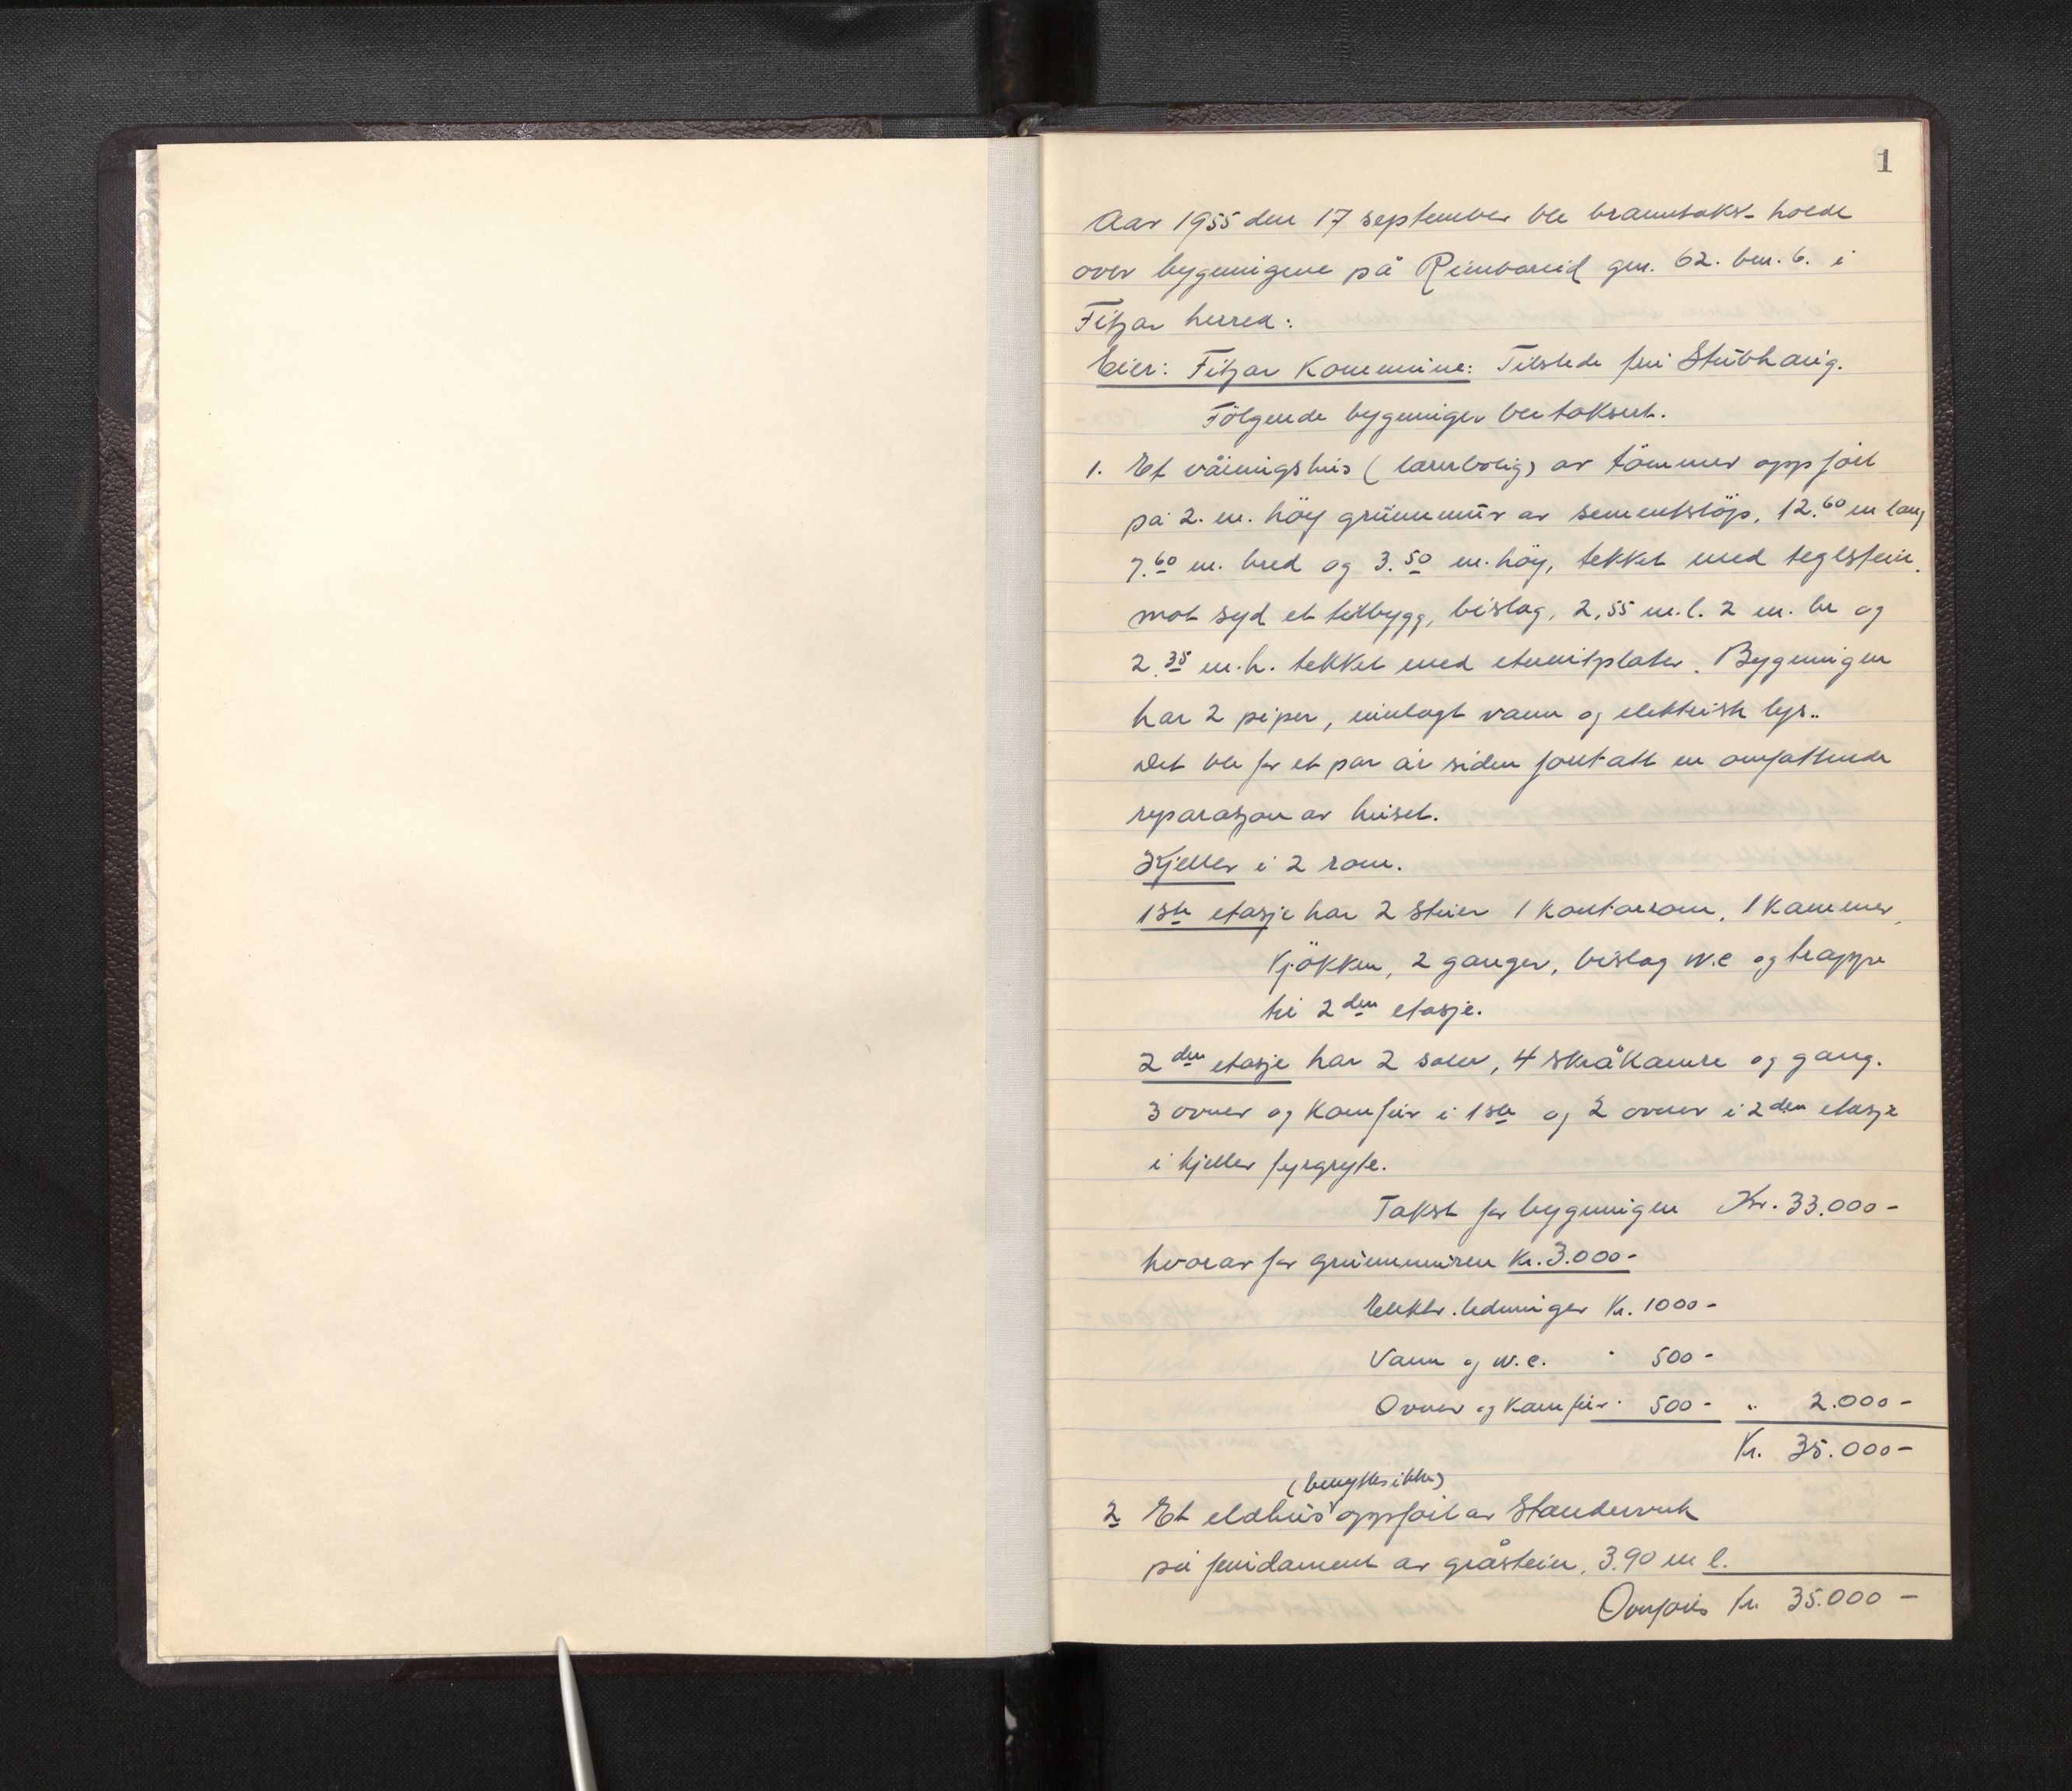 1
Aar 1955 den 17 september ble branntakst holdt
over bygningene på Rimbareid gnr. 62. bnr. 6. i
Fitjar herred:
Eier: Fitjar Kommune: Tilstede fru Stubhaug.
Følgende bygninger ble taksert.
1. Et våningshus (lærerbolig) av tömmer oppført
på 2. m. höy grunnmur av sementstöp, 12.60 m lang
7.60 m. bred og 3.50 m. höy, tekket med teglstein.
mot syd et tilbygg, bislag, 2,55 m. l. 2 m. br og
2.35 m. h. tekket med eternitplater. Bygningen
har 2 piper, innlagt vann og elektrisk lys..
Det ble for et par år siden foretatt en omfattende
reparasjon av huset.
Kjeller i 2 rom.
1ste etasje har 2 stuer 1 kontorrom, 1 kammer,
Kjökken, 2 ganger, bislag w.c og trappe
til 2den etasje.
2den etasje har 2 saler, 4 skråkamre og gang.
3 ovner og komfur i 1ste og 2 ovner i 2den etasje
i kjeller fyrgryte.
Takst for bygningen Kr. 33.000-
hvorav for grunnmuren Kr. 3.000-
Elektr. ledninger Kr. 1000-
Vann og w.c. " 500-
Ovner og Komfur " 500- " 2.000-
Kr. 35.000-
(benyttes ikke)
2 Et eldhus oppført av Standerverk
på fundament av gråstein, 3.90 m l.
Overføres kr. 35.000-